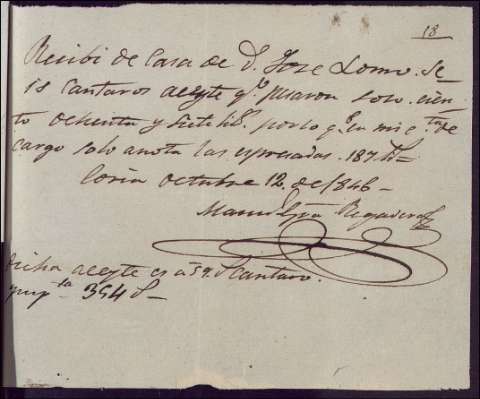 18
Recibí de Casa de D. Jose Lomo. Se
is Cantaros aceyte q.e pesaron solo cien
to ochenta y siete lib.s por lo q.e en mi c.ta de
cargo solo anota las espresadas. 187
Coria Octubre 12. de 1846
Man.l
dicha aceyte es a 59. Cantaro.
354